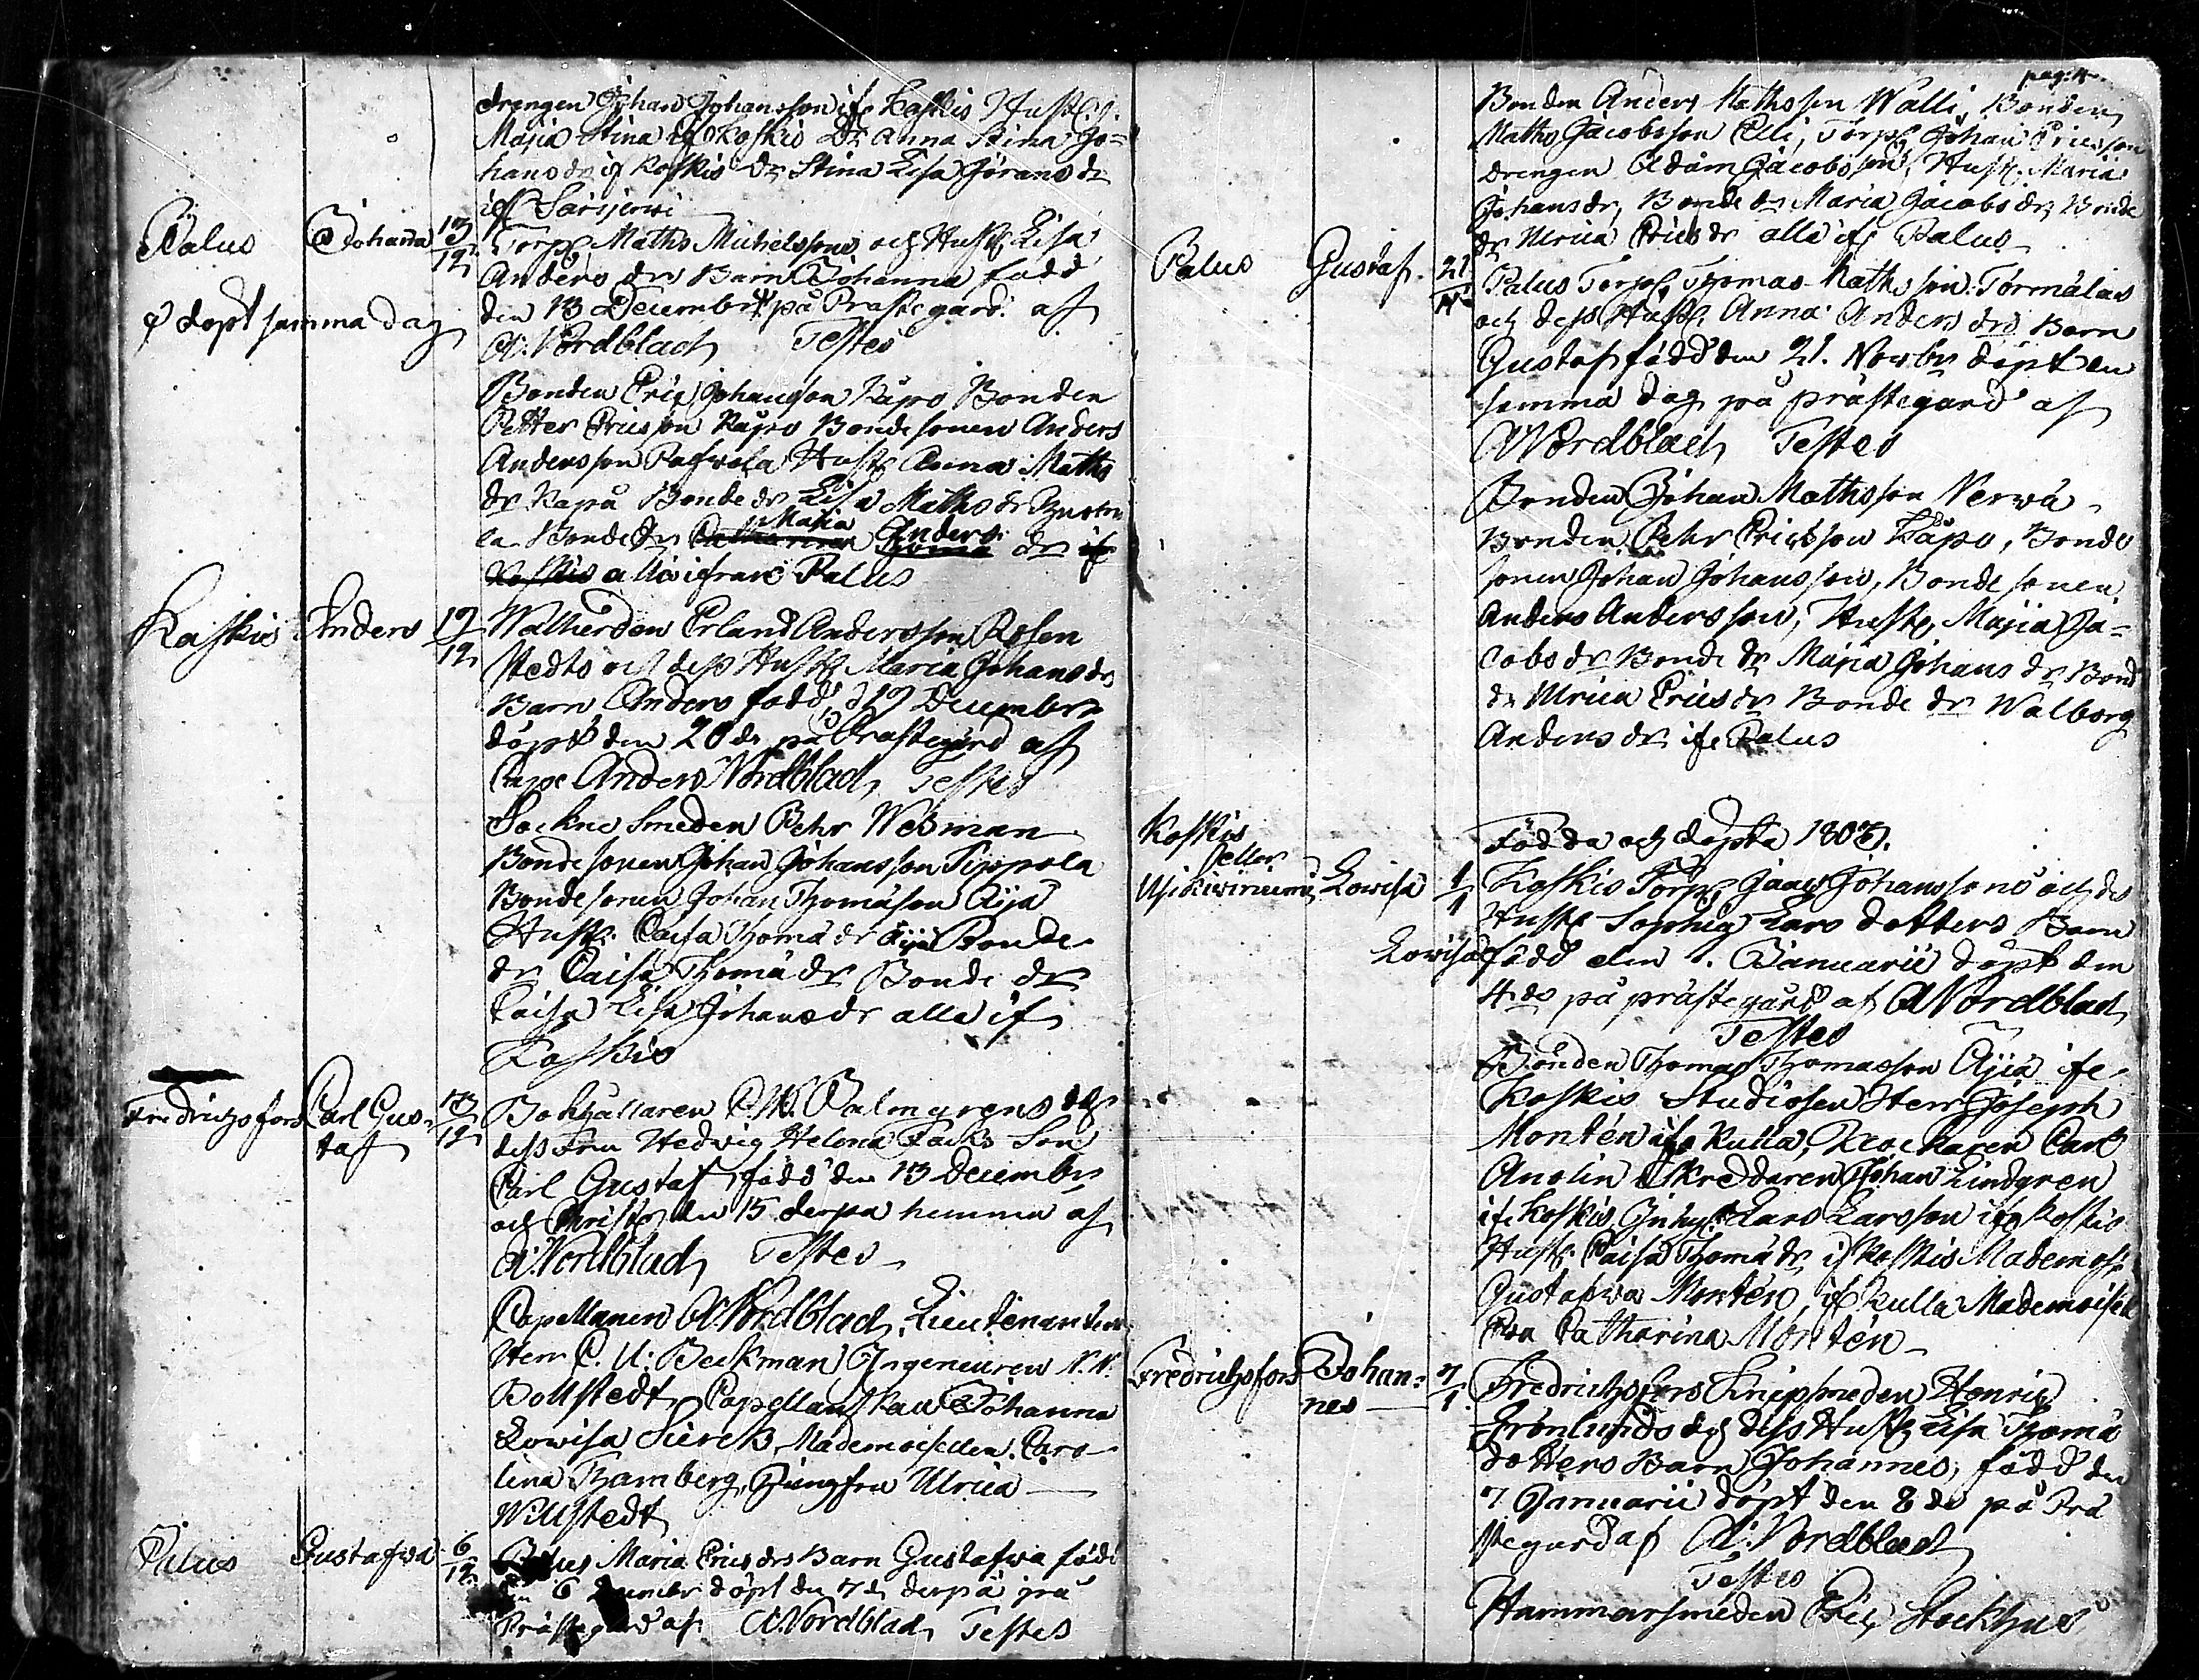 drengen Johan Johansson if. Koskis Hust.
Maja Stina if Koskis Dr Anna Stina Jo=
hans dr if Koskis dr Stina Lisa Görans dr
if Särsjerwi
Palus Johanna 13/12 Torp. Matts Michelssons och Hust. Lisa
Anders drs Barn Johanna född
den 13 December på Prästegård af
döpt samma dag
A. Nordblad Testes
Bonden Eric Johansson Käpo Bonden
Petter Ericsson Käpo Bondesonen Anders
Andersson Hust Anna Matts
dr Bonde dr Lisa Matts dr
la Bonde dr Maria Anders dr
alla ifrån Palus
Koskis Anders 19/12 Erland Andersson Rosen
stedts och dess Hust Maria Johans drs
Barn Anders född d 19 December
döpt den 20 dr på Prästegård af
Anders Nordblad, Testes
Sockne Smeden Pehr Wesman
Bondesonen Johan Johansson Tippola
Bondesonen Johan Thomasson Äijä
Hust. Caisa Thoma dr Äijä Bonde
dr Caisa Thoma dr Bonde dr
Caisa Lisa Johans dr alla if
Koskis
Fredrichsfors Carl Gus= 13/12 Bokhållaren C.W. Palmgrens och
taf
dess Fru Hedvig Helena Facks Son
Carl Gustaf född den 13 December
och Christn den 15 derpå hemma af
A. Nordblad, Testes
Capellanen A Nordblad, Lieutenanten
Herr C. U. Beckman, Ingeneuren N.N.
Bollstedt, Capellanskan Johanna
Lowisa Sierck, Mademoisellen Caro
lina Thamberg, Jungfru Ulrica
Willstedt
Palus Gustafwa 6/12 Palus Maria Erics drs Barn Gustafwa född
den 6 December döpt den 7 dr derpå på
Prästegård af A. Nordblad, Testes
pag: 4
Bonden Anders Mathsson Walli, Bonden
Maths Jacobsson Elli, Torp. Johan Ericsson
drengen Adam Jacobsson, Hust. Maria
Johans dr, Bonde dr Maria Jacobs dr, Bonde
dr Ulrica Erics dr alla if Palus
Palus Gustaf. 21/11 Palus Torp. Thomas Mathsson Törmäläs
och dess Hust. Anna Anders drs Barn
Gustaf född den 21. Novbr döpt den
samma dag på prästegård af
A Nordblad, Testes
Bonden Johan Mathsson Nerwä
Bonden Pehr Ericsson Käpo, Bonde
sonen Johan Johansson, Bonde sonen
Anders Andersson, Hust. Maja Ja=
cobs dr Bonde dr Maja Johans dr Bond
dr Ulrica Erics dr Bonde dr Walborg
Anders dr if. Palus
Födda och döpta 1807.
Koskis
eller
Lowisa 1/1 Koskis Torp. Johanssons och des
Hust Sophia Lars dotters Barn
Lowisa född den 1. Januarii döpt den
4 de på prästegård af A Nordblad,
Testes
Bonden Thomas Thomasson Äijä if.
Koskis Studiosen Herr Joseph
Montén if. Kulla, Klockaren Carl
Anolin Skreddaren Johan Lindgren
if. Koskis, Inhys. Lars Larsson if. Koskis
Hust. Caisa Thoma dr if Koskis Mademois.
Gustafva Montén, if Kulla Mademoiselle
Eva Catharina Montén
Fredrichsfors Johan= 7/1 Fredrichsfors Knipsmeden Henric
nes
Grönlunds och dess Hust. Lisa Thoma
dotters Barn Johannes, född den
7 Januarii döpt den 8 de på Prä
stegård af A: Nordblad
Testes
Hammarsmeden Eric Stockhus